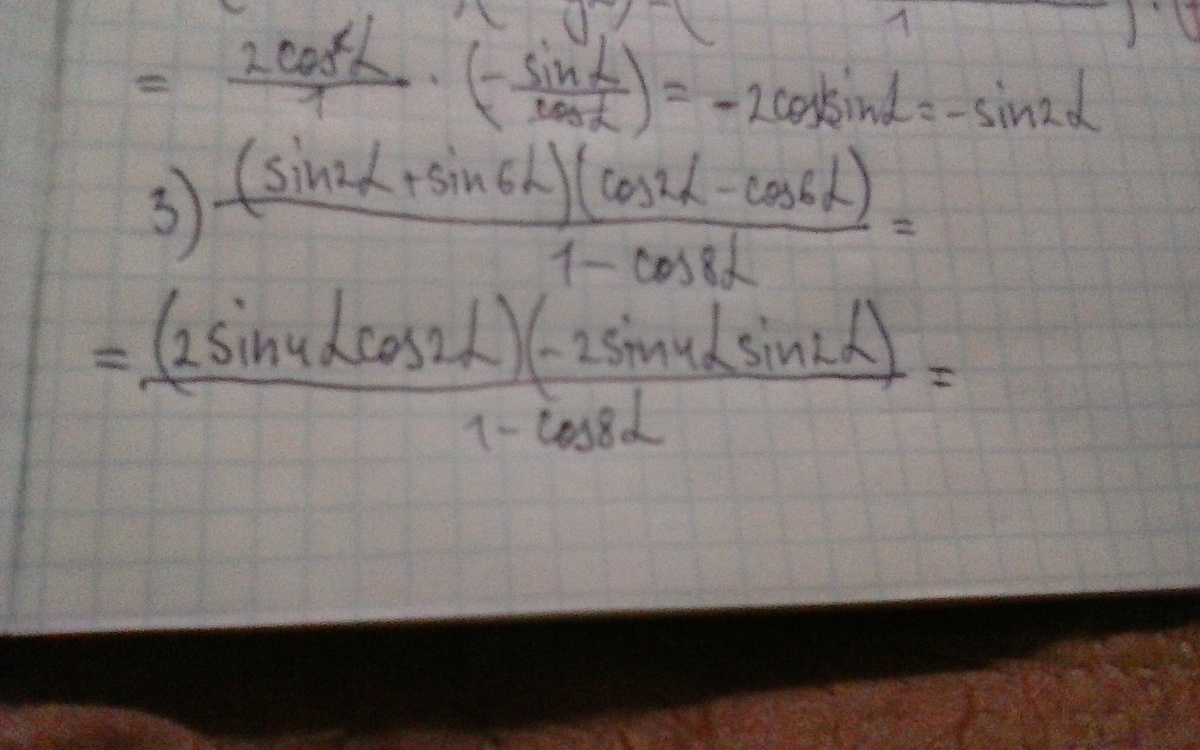 = 2cos²α/1 · (- sinα/cosα) = -2cosαsinα = -sin2α
3) (sin2α + sin6α)(cos2α - cos6α)/1 - cos8α =
= (2sin4αcos2α)(-2sin4αsin2α)/1 - cos8α =